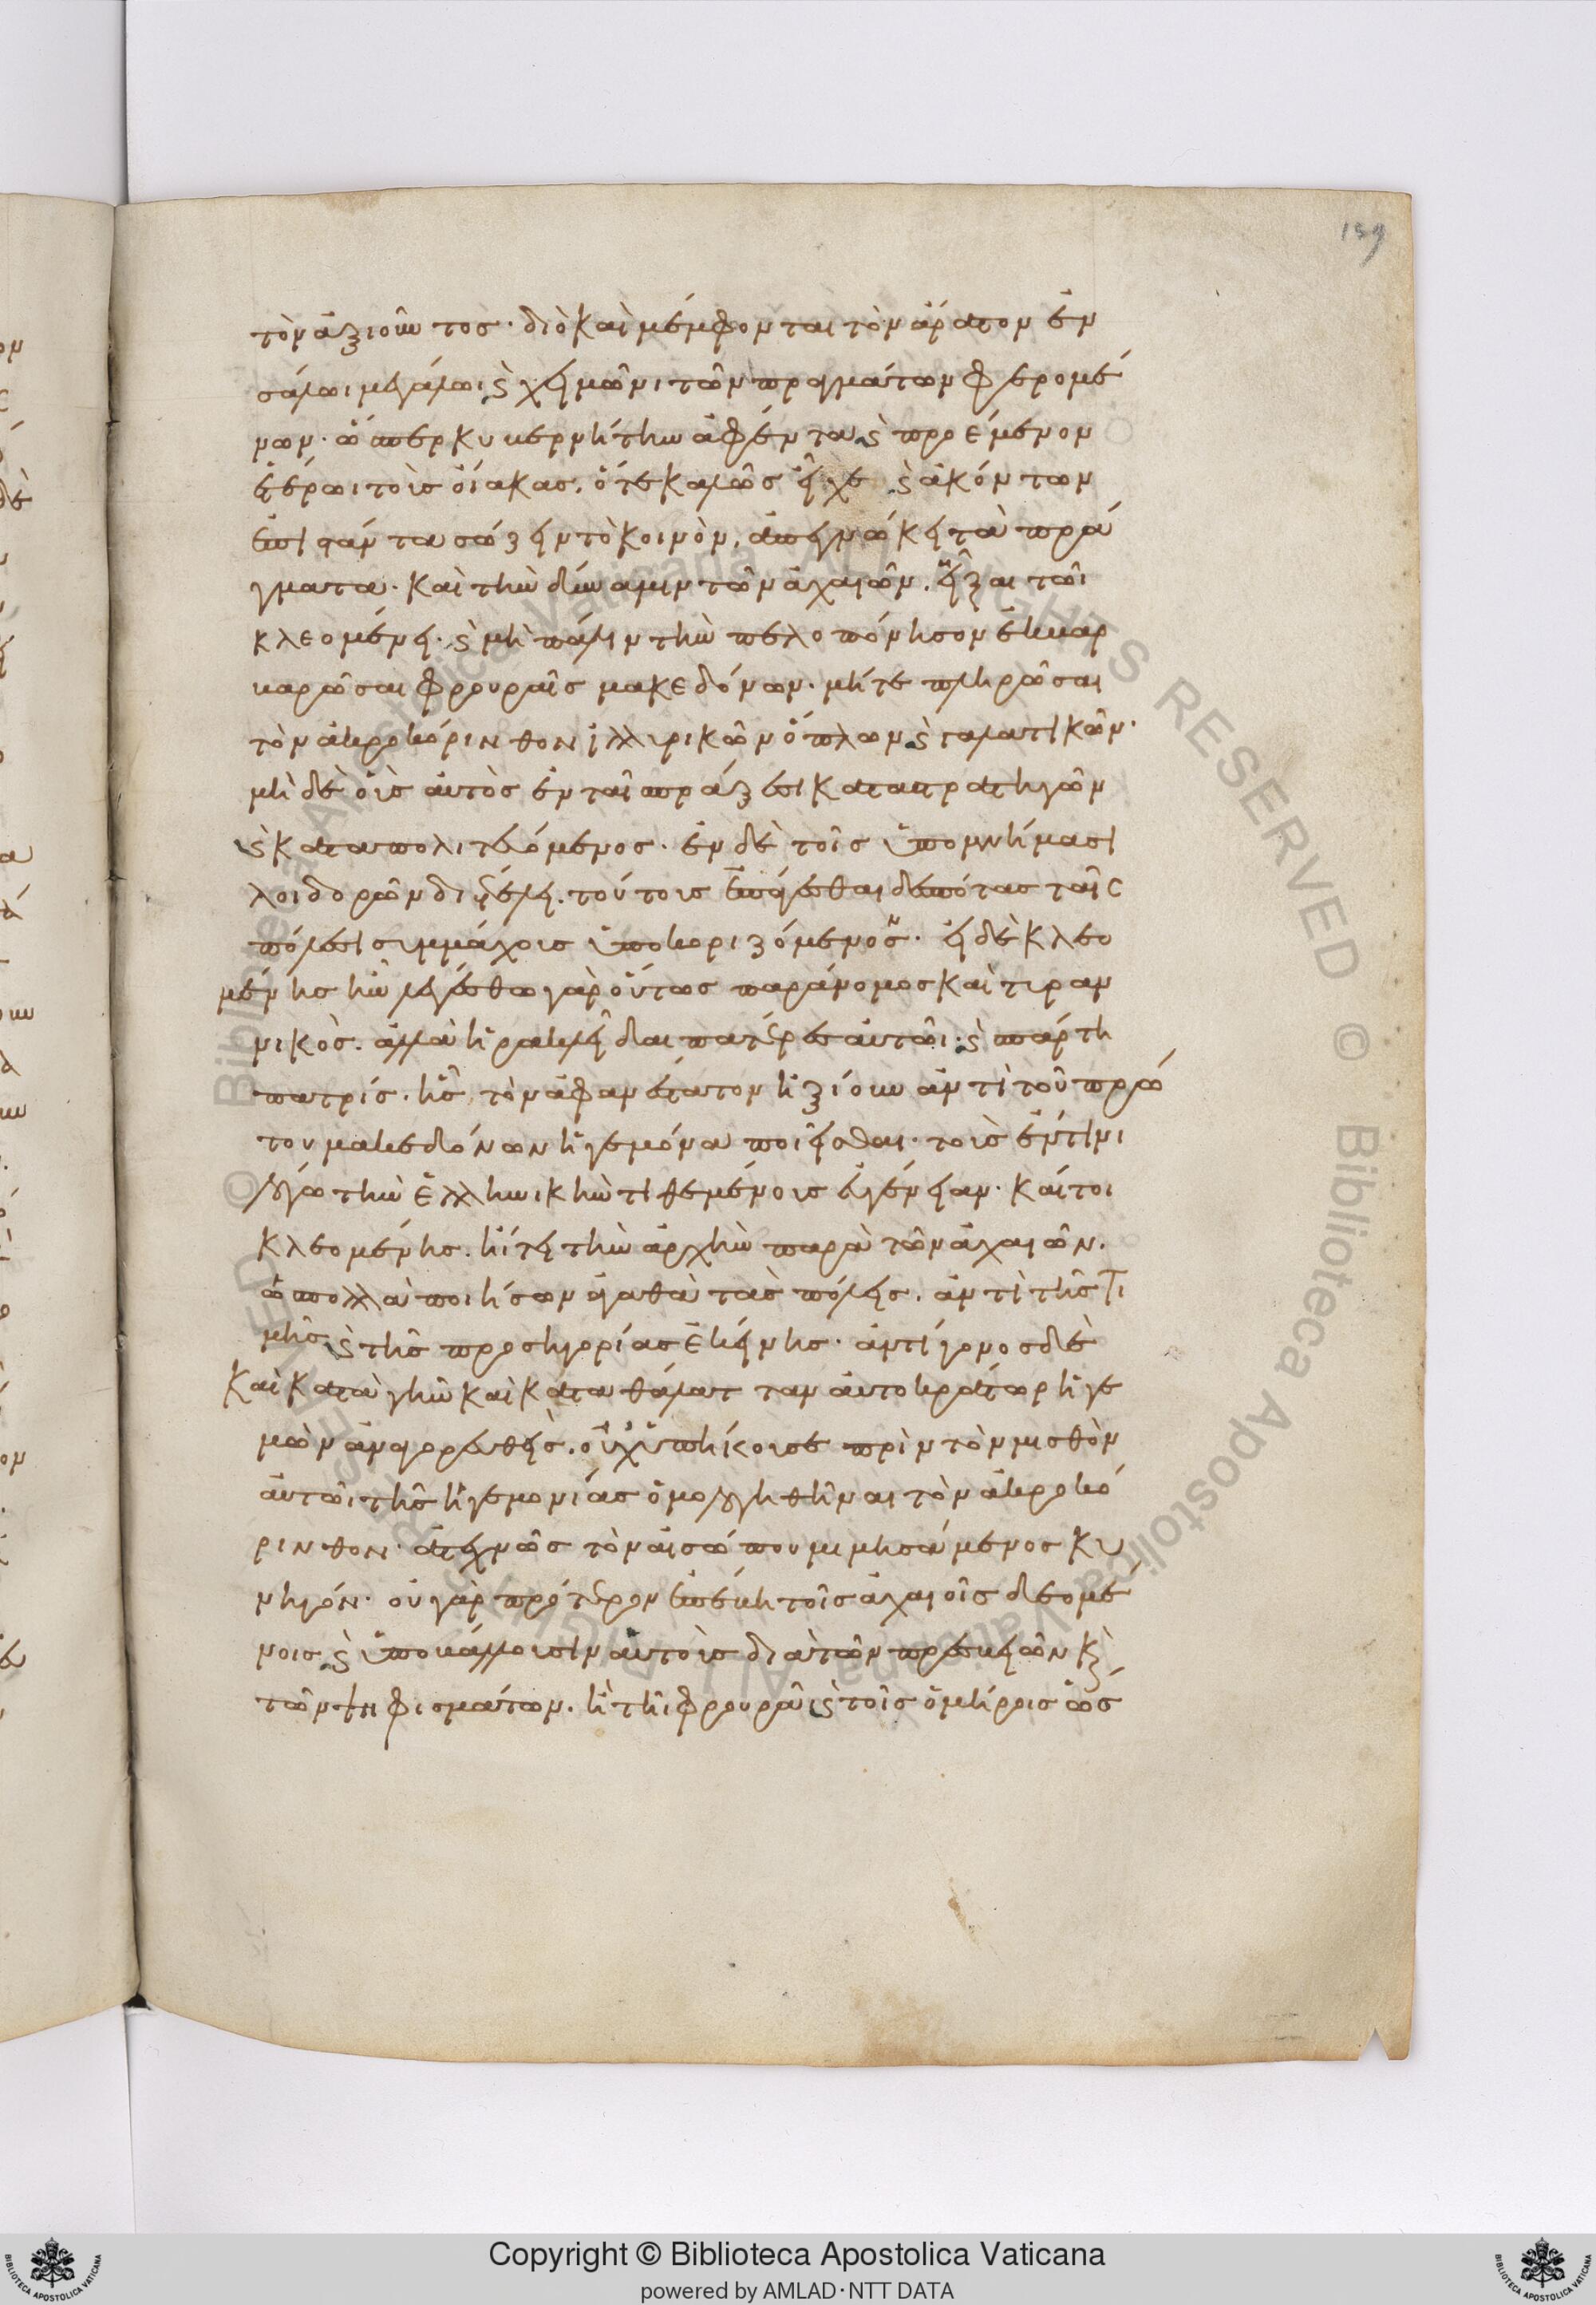 139
τὸν ἀξιοῦντος· διὸ καὶ μέμφονται τὸν ἄρατον ἐν
σάλωι μεγάλωι ϗ χειμῶνι τῶν πραγμάτων φερομέ
νων· ὥσπερ κυβερνήτην ἀφέντα ϗ προέμενον
ἑτέρωι τοὺς οἴακας, ὅτε καλῶς εἶχε ϗ ἀκόντων
ἐπιστάντα σώζειν τὸ κοινὸν, ἀπεγνώκει τὰ πρά
γματα· καὶ τὴν δύναμιν τῶν ἀχαιῶν, εἶξαι τῶι
κλεομένει· ϗ μὴ πάλιν τὴν πελοπόνησον ἐκβαρ
βαρῶσαι φρουραῖς μακεδόνων· μήτε πληρῶσαι
τὸν ἀκροκόρινθον ἰλλυρικῶν ὅπλων ϗ γαλατικῶν·
μὴ δὲ οὓς αὐτὸς ἐν ταῖ πράξεσι καταστρατηγῶν
ϗ καταπολιτευόμενος· ἐν δὲ τοῖς ὑπομνήμασι
λοιδορῶν διετέλει, τούτους ἐπάγεσθαι δεσπότας ταῖς
πόλεσι συμμάχους ὑποκοριζόμενος· εἰ δὲ κλεο
μένης ἦν λεγέσθω γὰρ οὕτως παράνομος καὶ τυραν
νικὸς. ἀλλὰ ἡρακλεῖδαι πατέρες αὐτῶι· ϗ σπάρτη
πατρίς· ἧς τὸν ἀφανέστατον ἠξίουν ἀντὶ τοῦ πρώ
του μακεδόνων ἡγεμόνα ποιεῖσθαι· τοὺς ἔν τινι
λόγω τὴν ἑλληνικὴν τιθεμένους εὐγένειαν· καίτοι
κλεομένης, ἤιτει τὴν ἀρχὴν παρὰ τῶν ἀχαιῶν.
ὡς πολλὰ ποιήσων ἀγαθὰ τὰς πόλεις, ἀντὶ τῆς τι
μῆς ϗ τῆς προσηγορίας ἐκείνης· ἀντίγονος δὲ
καὶ κατὰ γῆν καὶ κατα θάλατταν αὐτοκράτωρ ἡγε
μὼν ἀναγορευθεὶς, οὐχ ὑπήκουσε πρὶν τὸν μισθὸν
αὐτῶι τῆς ἡγεμονίας ὁμολογηθῆναι τὸν ἀκροκό
ρινθον· ἀτεχνῶς τὸν αἰσώπου μιμησάμενος κυ
νηγόν· οὐ γὰρ πρότερον ἐπέβη τοῖς ἀχαιοῖς δεομέ
νοις ϗ ὑποβάλλουσιν αὑτοὺς διὰ τῶν πρεσβειῶν κὶ
τῶν ψηφισμάτων, ἢ τῆι φρουρᾶι ϗ τοῖς ὁμήροις ὡς
Copyright © Biblioteca Apostolica Vaticana
powered by AMLAD·NTT DATA